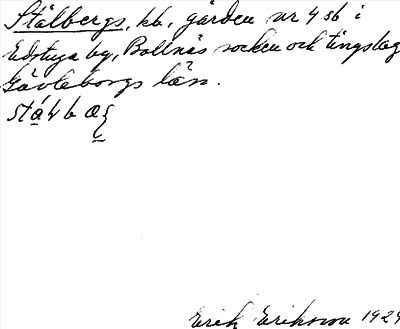 Stålbergs, hb., gården nr 4 sb i
Edstuga by, Bollnäs socken och tingslag
Gävleborgs län.
Erik Eriksson 1929